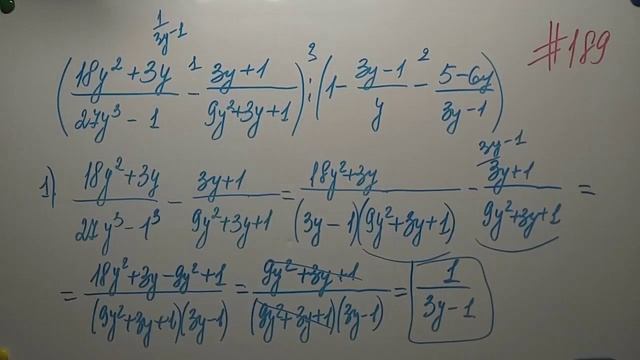 1/(3y-1)
#189
((18y²+3y)/(27y³-1) ¹- (3y+1)/(9y²+3y+1)) ³: (1 - (3y-1)/y ²- (5-6y)/(3y-1))
1) (18y²+3y)/(27y³-1³) - (3y+1)/(9y²+3y+1) = (18y²+3y)/((3y-1)(9y²+3y+1)) - ³ʸ⁻¹/ (3y+1)/(9y²+3y+1) =
= (18y²+3y-9y²+1)/((9y²+3y+1)(3y-1)) = (9y²+3y+1)/((9y²+3y+1)(3y-1)) = 1/(3y-1)